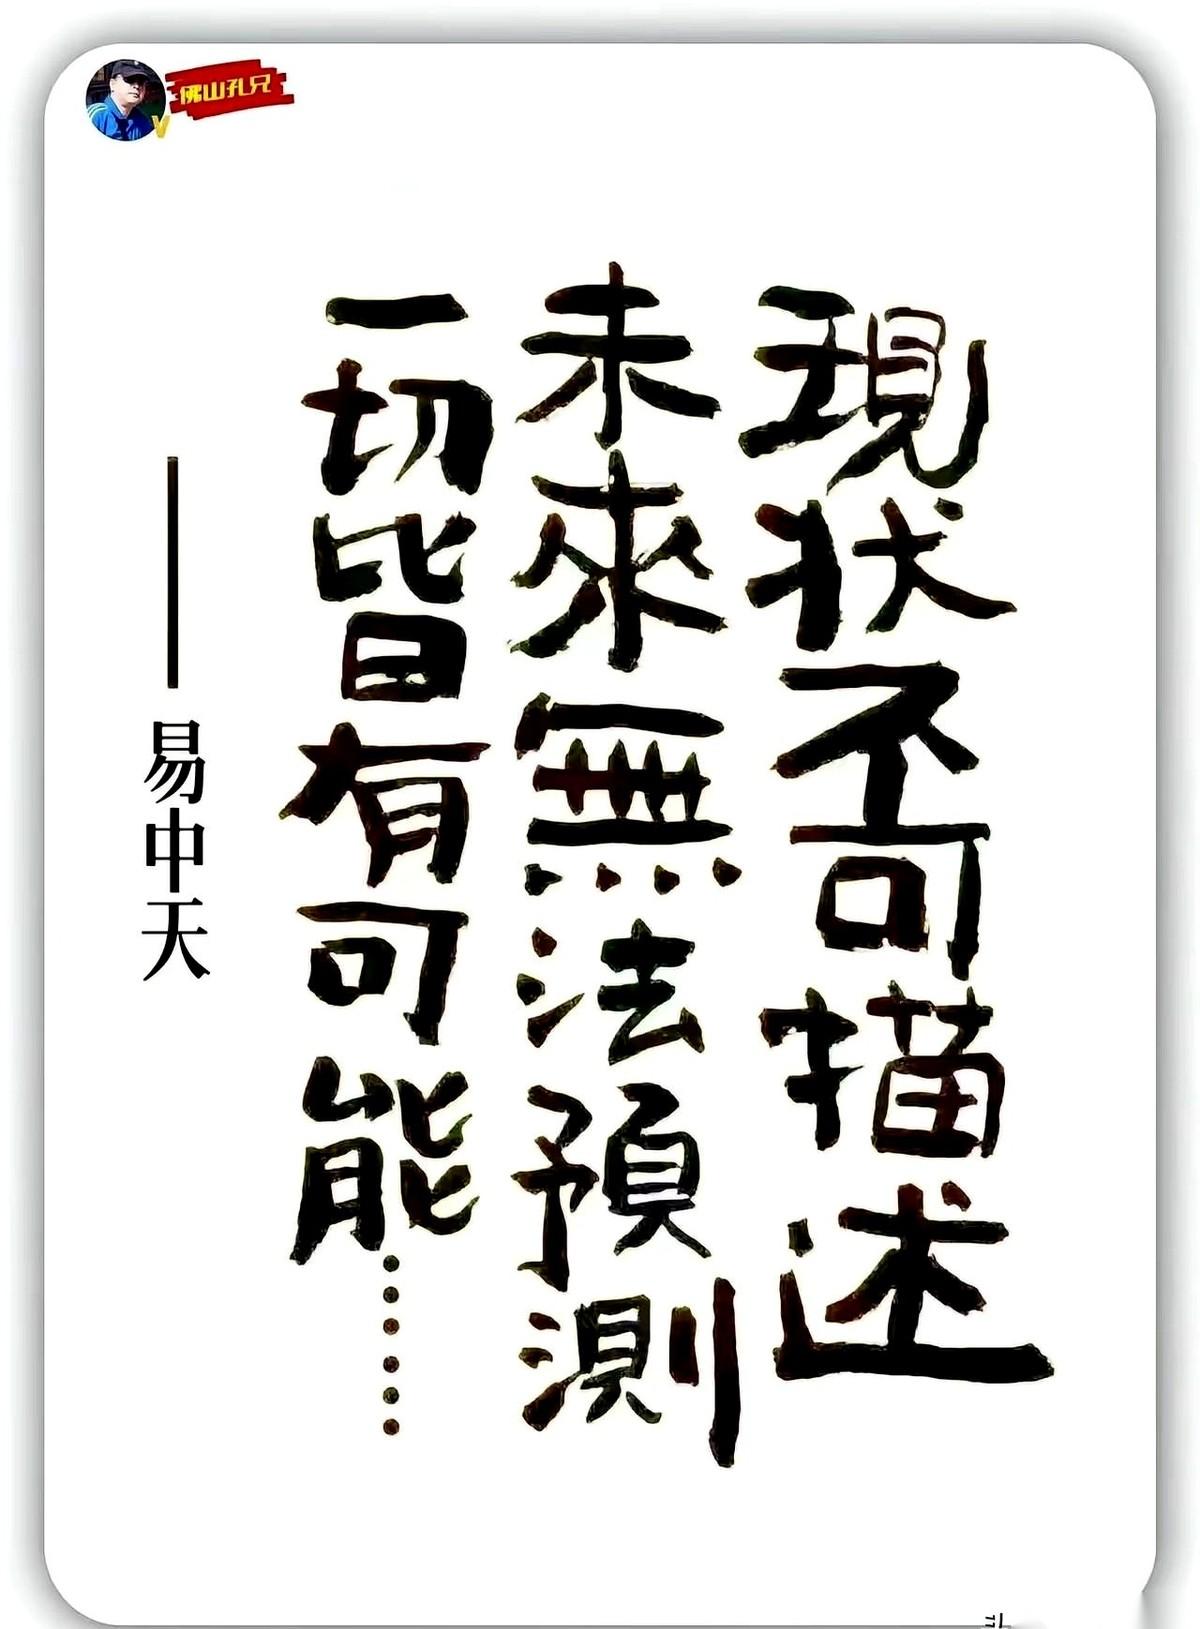 佛山孔兄
現状不可描述
未來無法預測
一切皆有可能……
——易中天